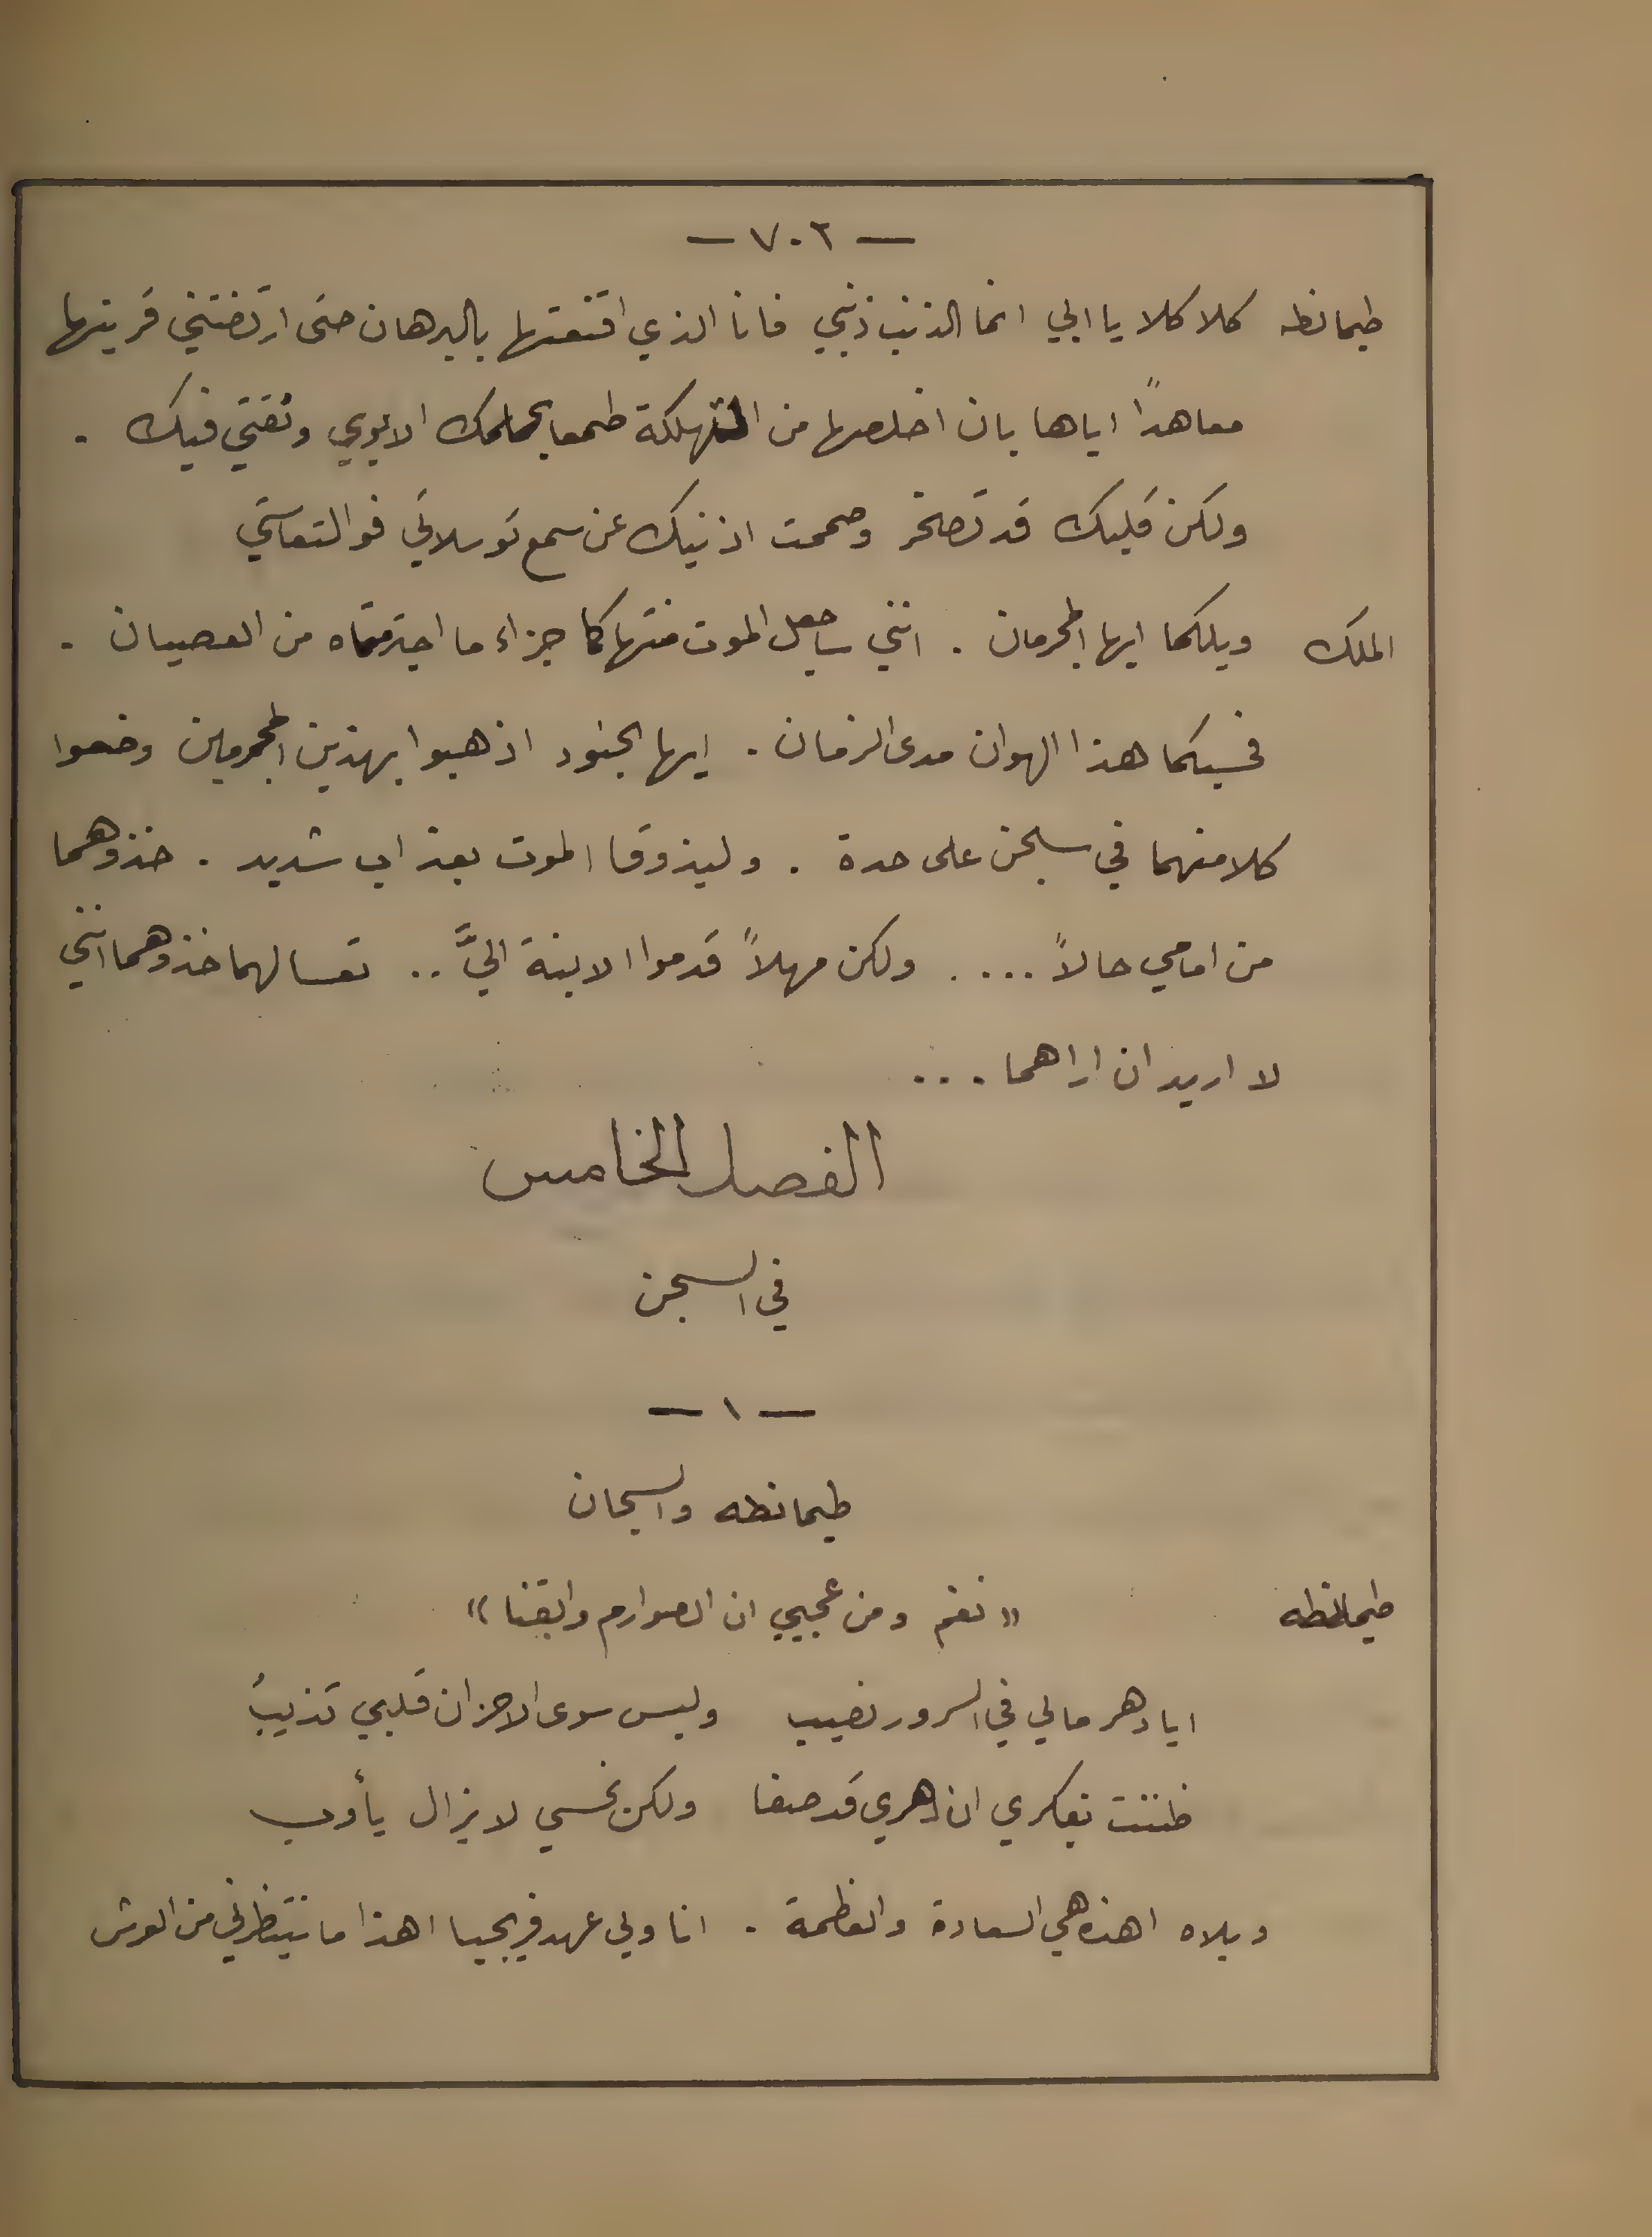 — ٧٠٢ —
طيمانظه كلا كلا يا ابي انما الذنب ذنبي فانا الذي اقنعتها بالبرهان حتى ارتضتني قرينها
معاهداً اياها بان اخلصها من التهلكة طمعا بحلمك الابوي وثقتي فيك .
ولكن قلبك قد تصخر وصممت اذنيك عن سمع توسلاتي فوالتعاستي
الملك ويلكما ايها المجرمان . انني ساجعل الموت منتهاكما جزاء ما اجترمتماه من العصيان .
فحسبكما هذا الهوان مدى الزمان . ايها الجنود اذهبوا بهذين المجرمين وضعوا
كلا منهما في سجن على حدة . وليذوقا الموت بعذاب شديد . خذوهما
من امامي حالاً .... ولكن مهلاً قدموا الابنة اليَّ .. تعسا لهما خذوهما انني
لا اريد ان اراهما ...
الفصل الخامس
في السجن
— ١ —
طيمانظه والسجان
طيمانظه « نغم ومن عجبي ان الصوارم والقنا »
ايا دهر مالي في السرور نصيب وليس سوى الاحزان قلبي تذيبُ
ظننت بفكري ان دهري قد صفا ولكن نحسي لا يزال يأوب
ويلاه اهذه هي السعادة والعظمة . انا ولي عهد فريجيا اهذا ما ينتظرني من العرش